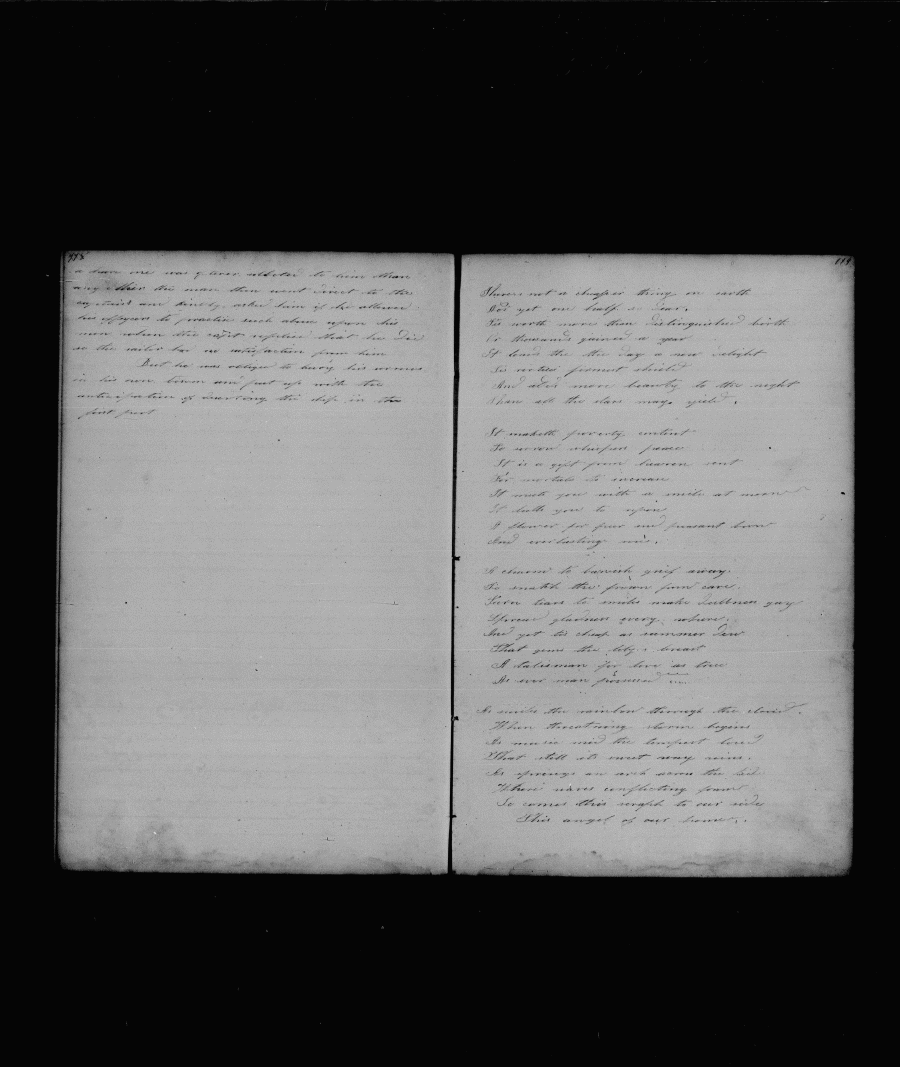 118
a given one was never allotted to him than
any other the man then went direct to the
captain and kindly asked him if he allowed
his officers to practice such abuse upon his
men when the capt replied that he did
so the sailor has no satisfaction from him
But he was obliged to bury his sorrows
in his own bosom and put up with the
anticipation of leaving the ship in the
first port
119
There's not a cheaper thing on earth
Nor yet one half so dear,
Tis worth more than distinguished birth
Or thousands gained a year
It lends the the day a new delight
Tis virtues firmest shield
And adds more beauty to the night
Than all the stars may yield.
It maketh poverty content
To sorrow whispers peace
It is a gift from heaven sent
For mortals to increase
It meets you with a smile at morn
It lulls you to repose
A flower for peer and peasant born
And everlasting rose.
A charm to banish grief away
To snatch the frown from care
Turn tears to smiles make dullness gay
Spread gladness every where
And yet tis cheap as summer dew
That gems the lily's breast
A talisman for love as true
As ever man possessed
As smiles the rainbow through the cloud
When threatning storm begins
As music mid the tempest loud
That still its sweet way wins
As springs an arch across the tide
Where waves conflicting foam
So comes this seraph to our side
This angel of our home.